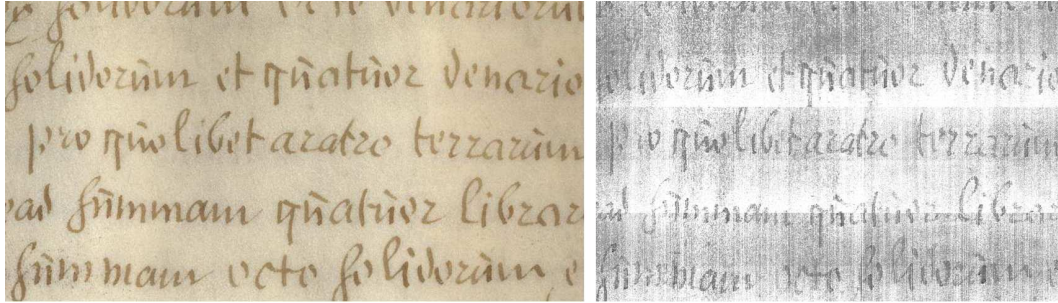 solidorum et quatuor denario
pro quolibet aratro terrarum
ad summam quatuor librar
summam octo solidorum e
solidorum et quatuor denario
pro quolibet aratro terrarum
ad summam quatuor libra
summam octo solidorum e